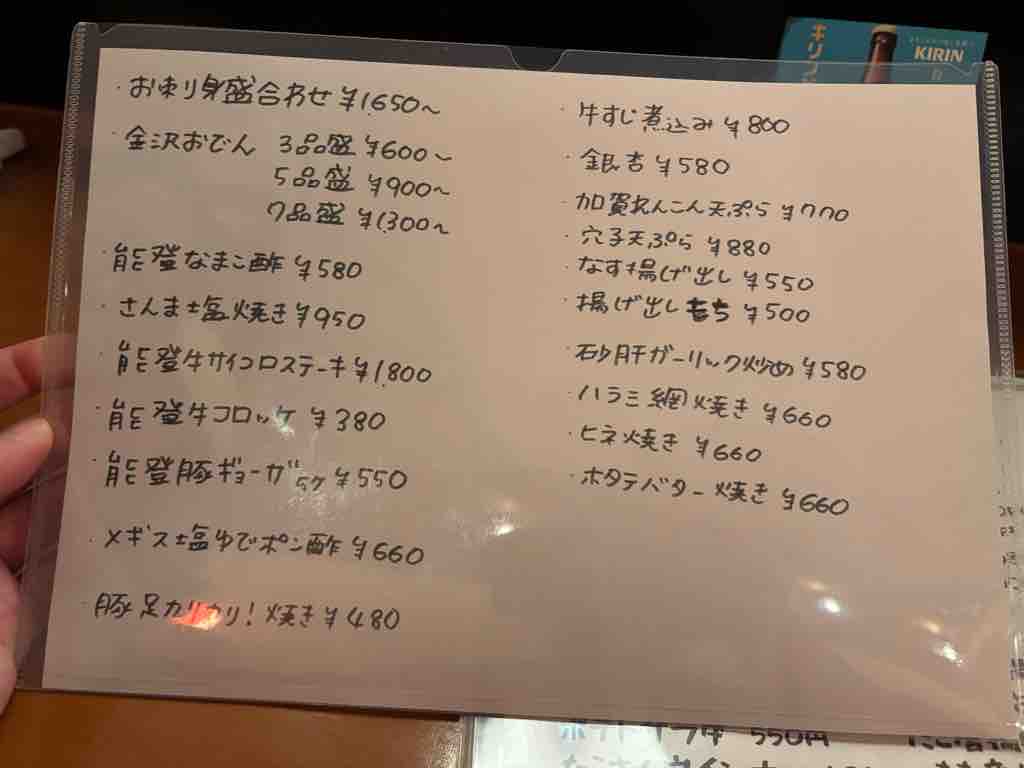 ・お刺り身盛合わせ ¥1,650〜
・金沢おでん 3品盛 ¥600〜
5品盛 ¥900〜
7品盛 ¥1,300〜
・能登なまこ酢 ¥580
・さんま塩焼き ¥950
・能登牛サイコロステーキ ¥1,800
・能登牛コロッケ ¥380
・能登豚ギョーザ 5ケ ¥550
・メギス塩ゆでポン酢 ¥660
・豚足カリカリ!焼き ¥480
・牛すじ煮込み ¥800
・銀杏 ¥580
・加賀れんこん天ぷら ¥770
・穴子天ぷら ¥880
・なす揚げ出し ¥550
・揚げ出しもち ¥500
・砂肝ガーリック炒め ¥580
・ハラミ網焼き ¥660
・ヒネ焼き ¥660
・ホタテバター焼き ¥660
KIRIN
550円